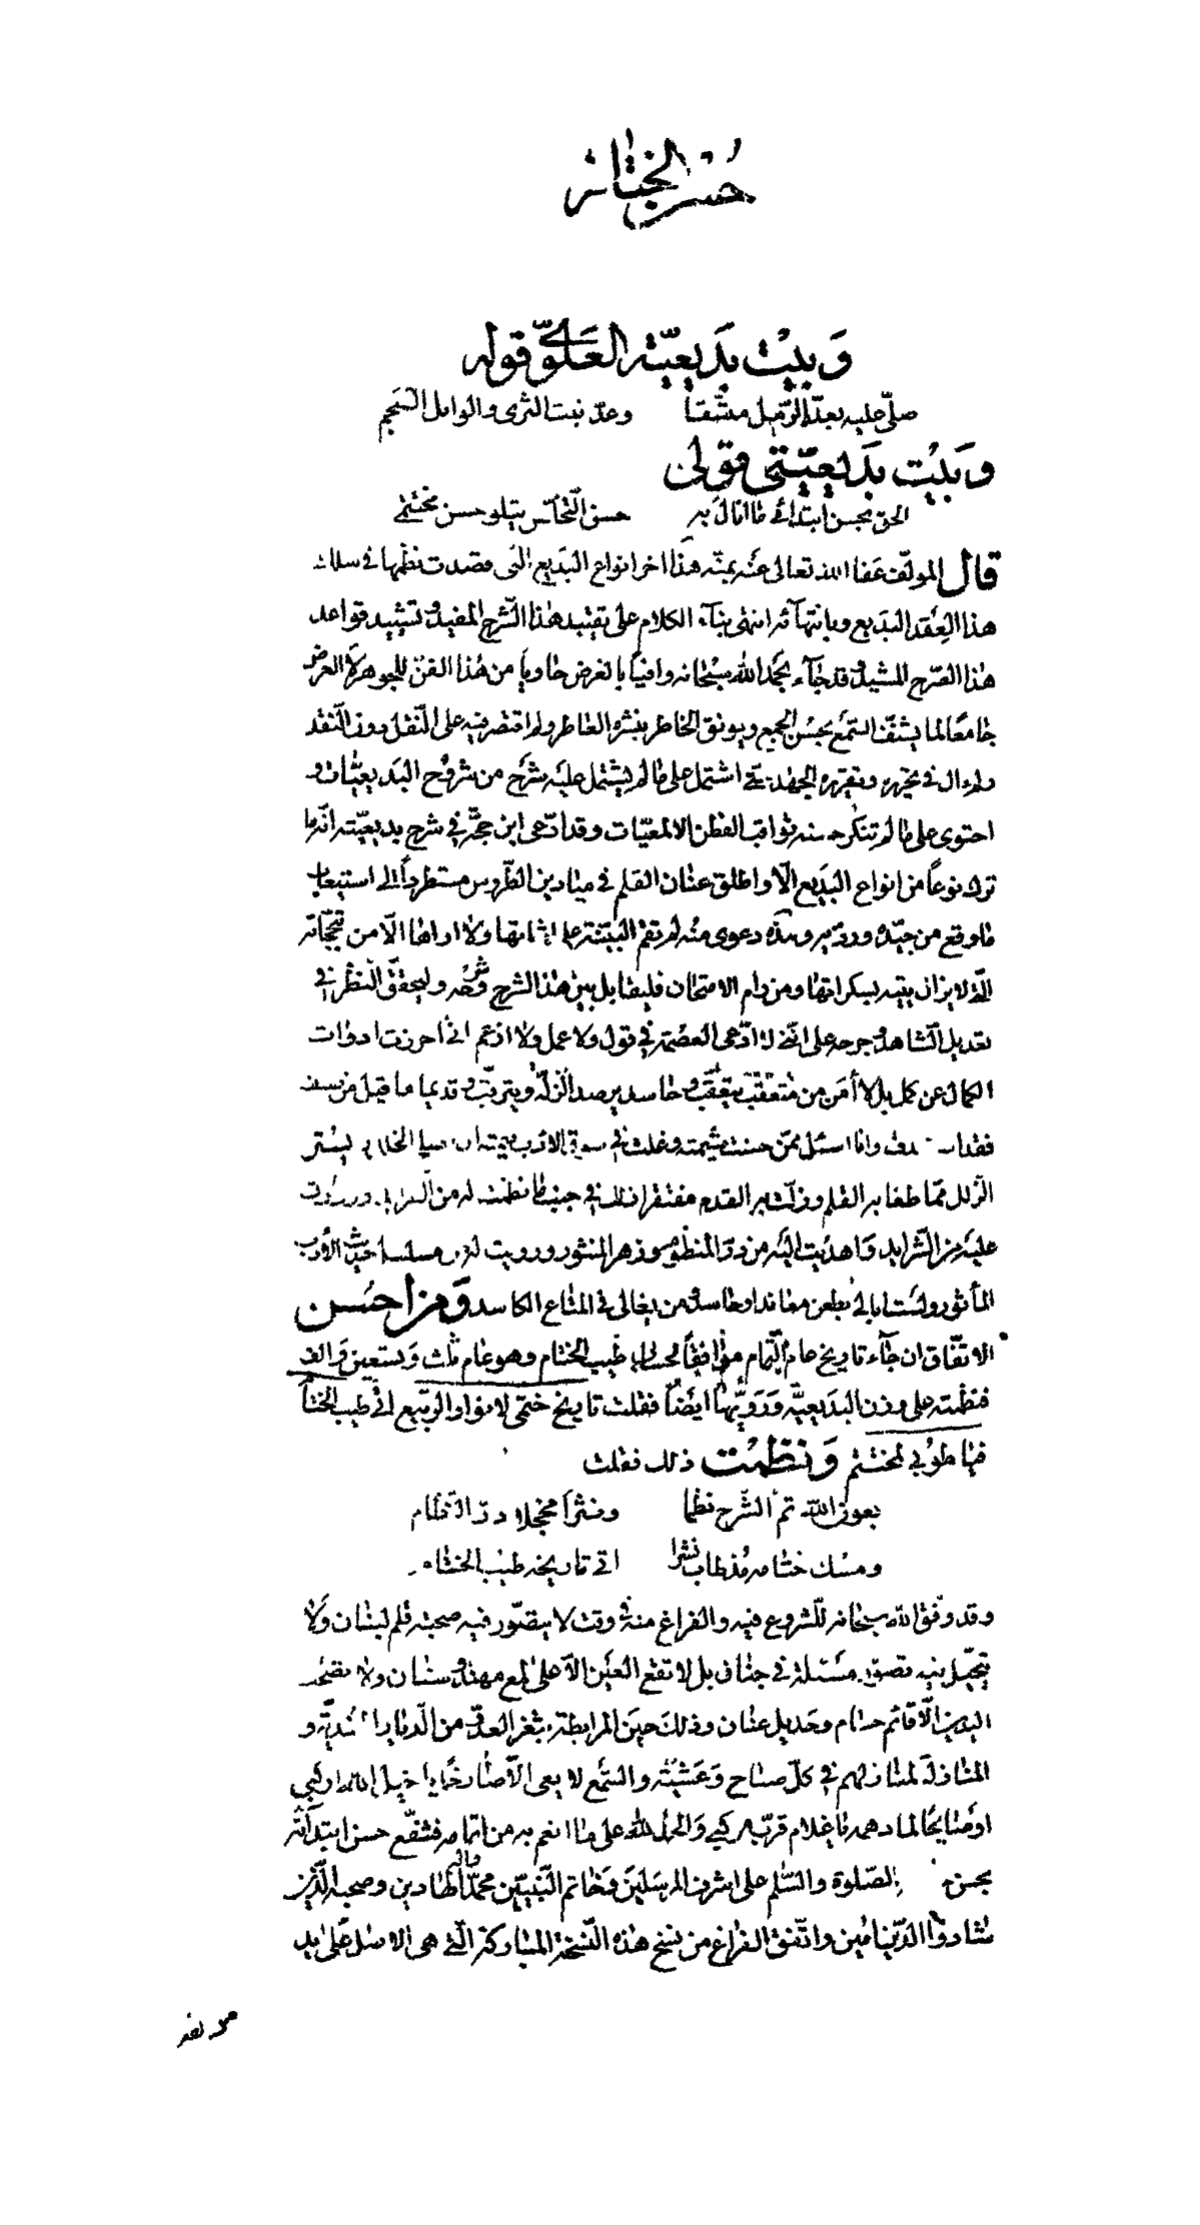 حسن الختام
وَبيْت بدَيعيّته العَلَويّ قوله
صلّى عليه بعدّ الرّمل مشفّعاً وعدّ نبت الثرى والوابل السّجم
وبَيْت بدَيعيّتي قولي
الحق بحسن ابتدائي ما انال به حسن التخلّص يتلو حسن مختتمي
قال المولّف عَفا الله تعالى عنه بمنّه هذا اخر انواع البَديع التى قصدت نظمها في سلك
هذا العِقد البَديع وبانتهآئه انتهى بنآء الكلام على تقييد هذا الشّرح المفيد وتشييد قواعد
هذا الصّرح المشيد وقد جآء بحَمد الله سبحانه وافياً بالغرض حاويا من هذا الفنّ للجوهر لا العرض
جامعًا لما يشنّف السّمع بحسْن الجمع ويونق الخاطر بنشره العاطر ولم اقتصر فيه على النّقل دون النّقد
ولم ال في تحريره وتقريره الجهد حتى اشتمل على ما لم يشتمل عليَه شرَح من شروُح البَديعيّات و
احتوى على ما لم تنكر حسنه ثواقب الفطن الالمعيّات وقد ادّعى ابن حجّة في شرح بديعيّته انّه ما
ترك نوعاً من انواع البَديع الّا واطلق عنان القلم في ميَادين الطّروس مستطرداً الى استيعاب
ما وقع من جيّده ورديه وهذه دعوى منه لم تقم البيّنة على اثباتها ولا اراها الّا من تبجّحاته
الّتى لا يزال يتيه بسكراتها ومن رام الامتحان فليقابل بين هذا الشرح وشرْحه وليحقّق النظر في
تعديل الشاهد وجرحه على انّني لا ادّعى العصمة في قول ولا عمل ولا ازعم اني احرزت ادوات
الكمال عن كمل بل لا أمَن من مُتعَقّب يتعقّب وحاسد يرصد الزلّة ويترقّب وقديما ما قيل من صنف
فقد استهدف وانا اسئل ممّن حسنت شيمته وغلت في سوق الادب قيمته ان يستر
الزّلل ممّا طغا به القلم وزلّت به القدم مغتفرا ذلك في جنب ما نظمت له من
عليَه من الشّرايد وَاهديْت اليَه من درّ المنظوم وزهر المنثور ورويت له من مسلسل احاديث الأدب
المأثور ولست ابالي بطعن معاند او حاسد ومن يغالى في المتاع الكاسد وَمن احسَن
الاتفّاق ان جآء تاريخ عام التّمام موٰافقاً لحساب طيب الختام وهو عام ثلث وَتسعين وَالف
فنظمته على وزن البَديعيّة وَرَوِيّها ايضاً فقلت تاريخ ختمى لانوار الرّبيع اتى طيب الختا
فيا طوبى لمختتم وَنظمْت ذلك فقلت
بعون الله تمّ الشّرح نظما ونثراً مخجلا درّ النّظام
ومسْك ختامه مُذ طاب نشرا اتى تاريخه طيْب الختام
وقد وفّق الله سبحانه للّشروع فيه والفراغ منه في وقت لا يتصّور فيه صحبة قلم لبنان وَلا
يتخيّل فيه تصوّر مسَئلة في جنان بل لا تقع العَين الّا على لمع مهنّد وسنان ولا تصَحب
اليدين الّا قائم حسام وجَديل عنان وذلك حيَن المرابطة بثغر العدّو من الّديار الهنديّة و
المنازلة لمنازلهم في كلّ صبَاح وَعَشيّة والسّمع لا يعى الّا صارخًا يا خيل الله اركبي
اوَصَايحًا لما دهمه يا غلام قرّب مركبي وَالحمَد لله على ما انعم به من اتمامه فشفّع حسن ابتدآئه
بحسن الصّلوة والسّلم على اشرف المرسَلينَ وَخاتم النّبيّين محمّد وآله الهادين وصحبه الّذين
شادوا الدّين واتّفق الفراغ من نسخ هذه النّسخة المبَاركة الّتى هى الاصْل على يد